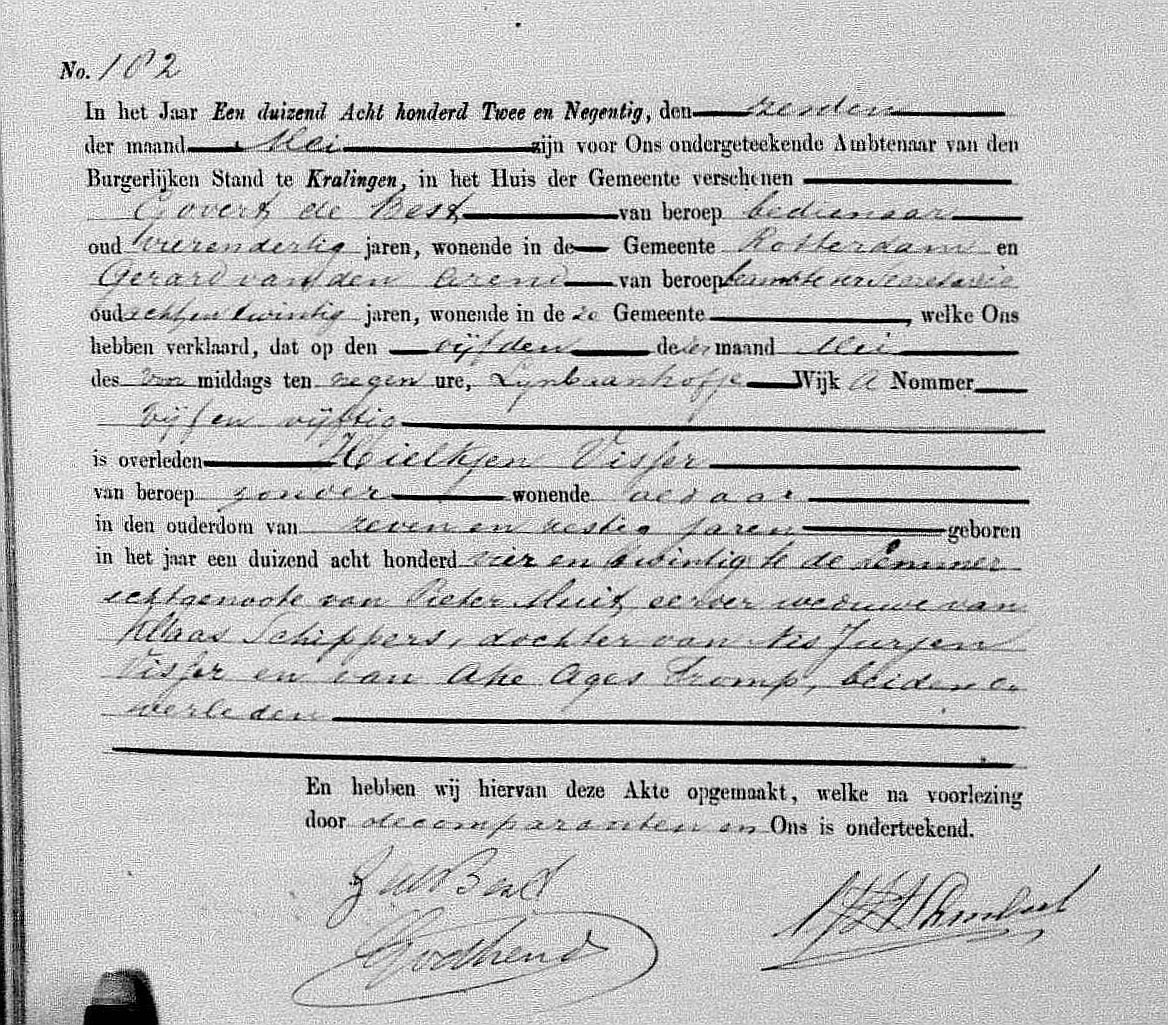 No. 102
In het Jaar Een duizend Acht honderd Twee en Negentig, den zesden
der maand Mei zijn voor Ons ondergeteekende Ambtenaar van den
Burgerlijken Stand te Kralingen, in het Huis der Gemeente verschenen
Govert de Best van beroep bedienaar
oud vierendertig jaren, wonende in de Gemeente Rotterdam en
Gerard van den Arend van beroep ambter secretarie
oud achtentwintig jaren, wonende in de ze Gemeente , welke Ons
hebben verklaard, dat op den vijfden dezer maand Mei
des voor middags ten negen ure, Lynbaanhofje Wijk A Nommer
vijf en vijftig
is overleden Hielkjen Visser
van beroep zonder wonende aldaar
in den ouderdom van zeven en zestig jaren geboren
in het jaar een duizend acht honderd vier en twintig te de Lemmer
echtgenoote van Pieter Muit eerder weduwe van
Klaas Schippers, dochter van Nis Jurjen
Visser en van Ake Ages Tromp, beiden o
verleden
En hebben wij hiervan deze Akte opgemaakt, welke na voorlezing
door de comparanten en Ons is onderteekend.